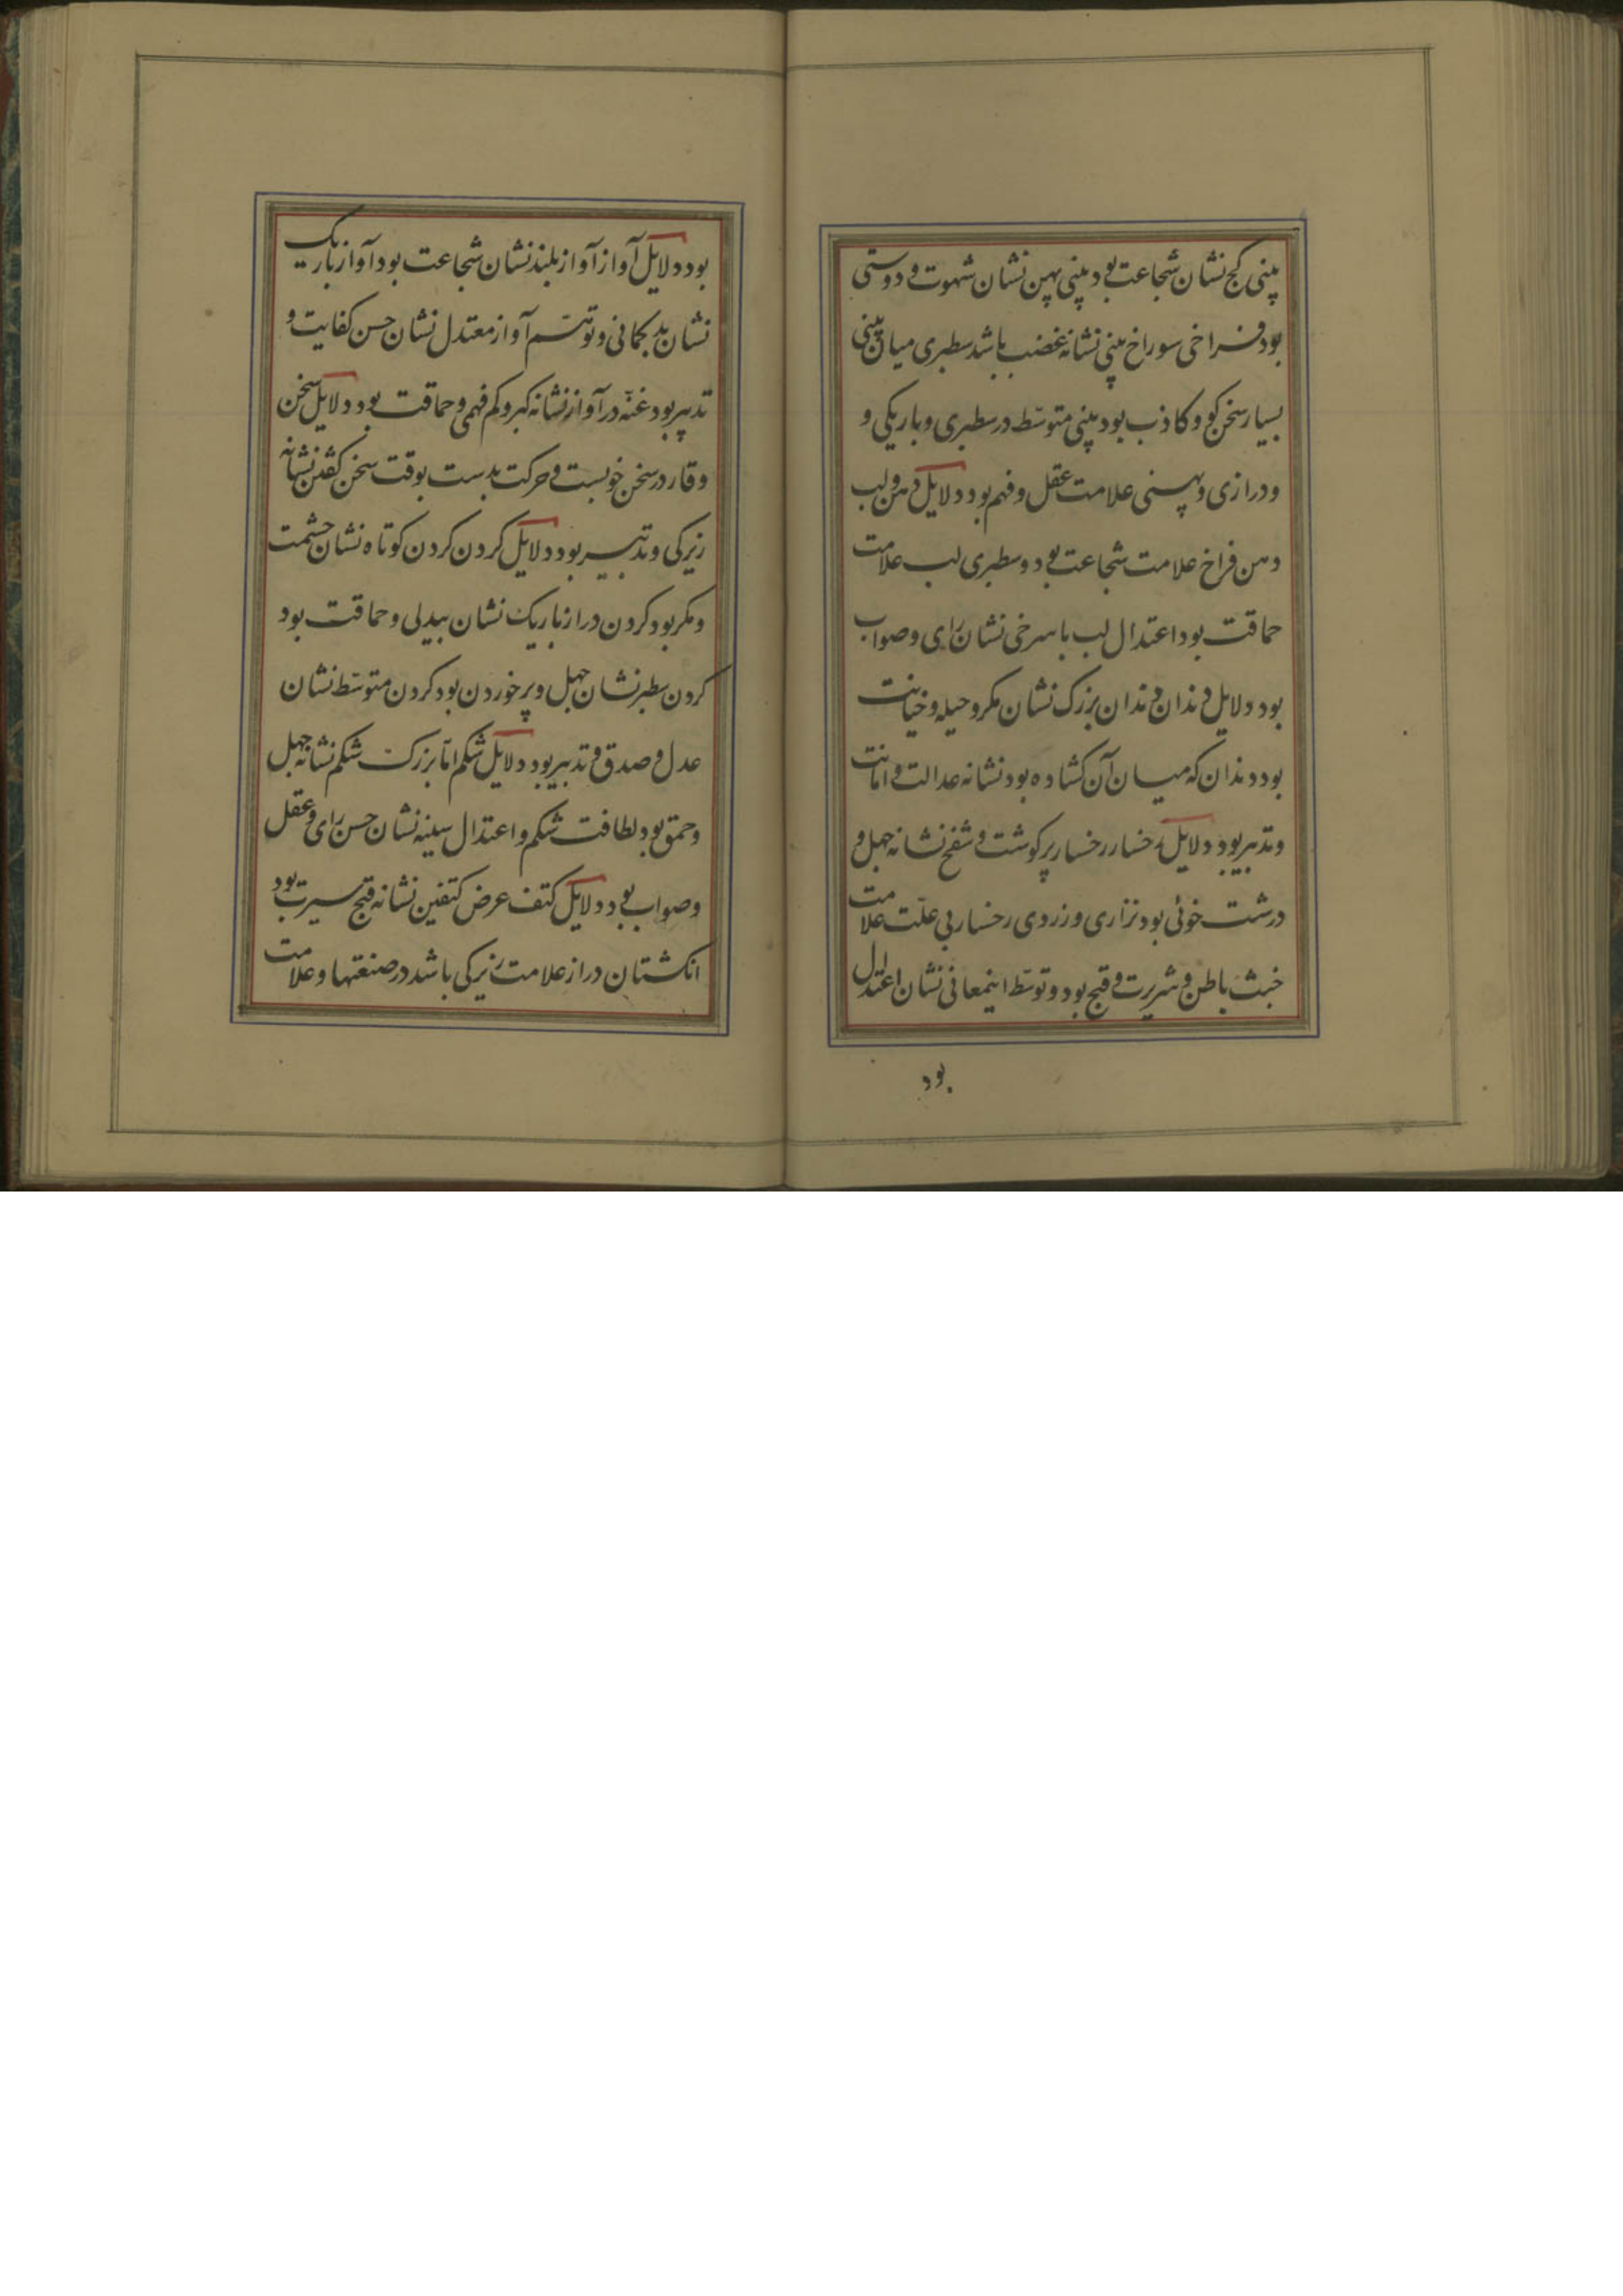 بینی کج نشان شجاعت بود بینی پهن نشان شهوت و دوستی
بود فراخی سوراخ بینی نشانه غضب باشد سطبری میان بینی
بسیار سخن کو و کاذب بود بینی متوسّط در سطبری و باریکی و
و درازی و پهنی علامت عقل و فهم بود دلایل دهن و لب
دهن فراخ علامت شجاعت بود و سطبری لب علامت
حماقت بود اعتدال لب با سرخی نشان رای و صواب
بود دلایل دندان دندان بزرک نشان مکر و حیله و خیانت
بود دندان که میان آن کشاده بود نشانه عدالت و امانت
و تدبیر بود دلایل رخسار رخسار پر کوشت و شفخ نشانه جهل و
درشت خوئی بود نزاری و زردی رخسار بی علّت علامت
خبث باطن و شریرت و قبح بود و توسّط اینمعانی نشان اعتدال
بود
بود دلایل آواز آواز بلند نشان شجاعت بود آواز باریک
نشان بد کمانی و توهّم آواز معتدل نشان حسن کفایت و
تدبیر بود غنّه در آواز نشانه کبر و کم فهمی و حماقت بود دلایل سخن
وقار در سخن خوبست و حرکت بدست بوقت سخن کفتن نشانه
زیرکی و تدبیر بود دلایل کردن کردن کوتاه نشان حشمت
و مکر بود کردن دراز باریک نشان بیدلی و حماقت بود
کردن سطبر نشان جهل و پر خوردن بود کردن متوسّط نشان
عدل و صدق و تدبیر بود دلایل شکم امّا بزرک شکم نشانه جهل
و حمق بود لطافت شکم و اعتدال سینه نشان حسن رای و عقل
و صواب بود دلایل کتف عرض کتفین نشانه قبح سیرت بود
انکشتان دراز علامت زیرکی باشد در صنعتها و علامت